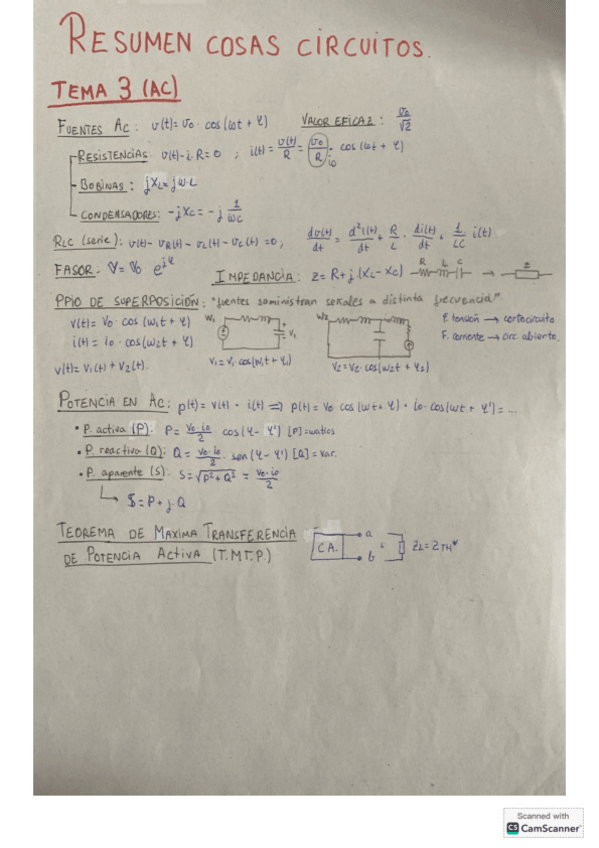 RESUMEN COSAS CIRCUITOS.
TEMA 3 (AC)
FUENTES AC: v(t)= v0 · cos (ωt + φ) VALOR EFICAZ: v0/√2
RESISTENCIAS: v(t)-i·R=0 ; i(t)= v(t)/R = v0/R · cos (ωt + φ)
i0
BOBINAS: jXL= jω·L
CONDENSADORES: -jXC= -j 1/ωC
RLC (serie): v(t)- vR(t)- vL(t)- vC(t)=0; dv(t)/dt = d²i(t)/dt + R/L · di(t)/dt + 1/LC · i(t)
FASOR: V= V0 e^jφ IMPEDANCIA: Z= R+j (XL-XC) R L C → Z
PPIO DE SUPERPOSICIÓN: "fuentes suministran señales a distinta frecuencia"
v(t)= V0 · cos (ω1t + φ) W1 V1 W2 F. tensión → cortocircuito
i(t)= i0 · cos(ω2t + φ) F. corriente → circ. abierto.
v(t)= V1(t) + V2(t). V1= V1 · cos(ω1t + φ1) V2= V2 · cos(ω2t + φ2)
POTENCIA EN AC: p(t)= v(t) - i(t) ⇒ p(t)= V0 cos (ωt+φ) · i0 · cos(ωt + φ')=...
• P. activa (P): P= V0·i0/2 cos(φ-φ') [P]=watios
• P. reactiva (Q): Q= V0·i0/2 · sen(φ-φ') [Q]= var.
• P. aparente (S): S=√P²+Q² = V0·i0/2
↳ S=P+j.Q
TEOREMA DE MAXIMA TRANSFERENCIA
DE POTENCIA ACTIVA (T.M.T.P.) CA. a b ZL= ZTH*
Scanned with
CS CamScanner